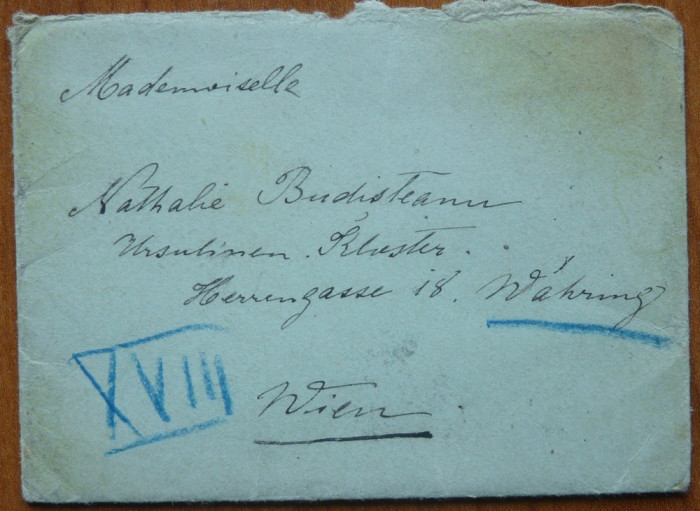 Mademoiselle
Nathalie Budisteanu
Ursulinen. Kloster.
Herrengasse 18. Währing
XVIII
Wien.